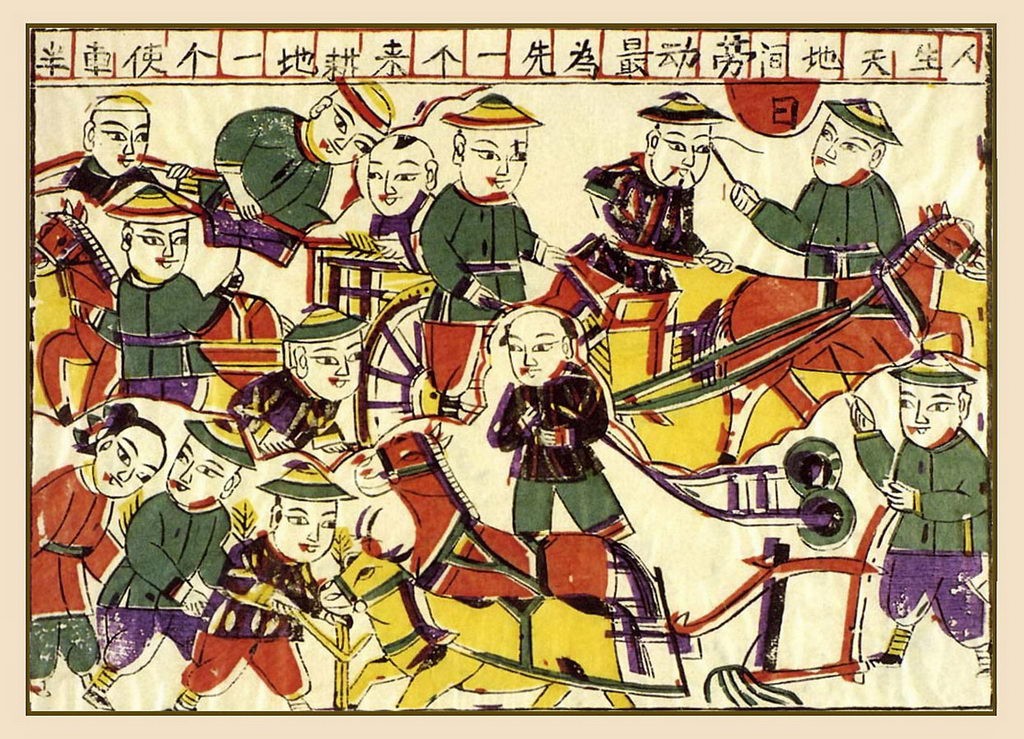 人生天地间劳动最為先一个来耕地一个使車半
日